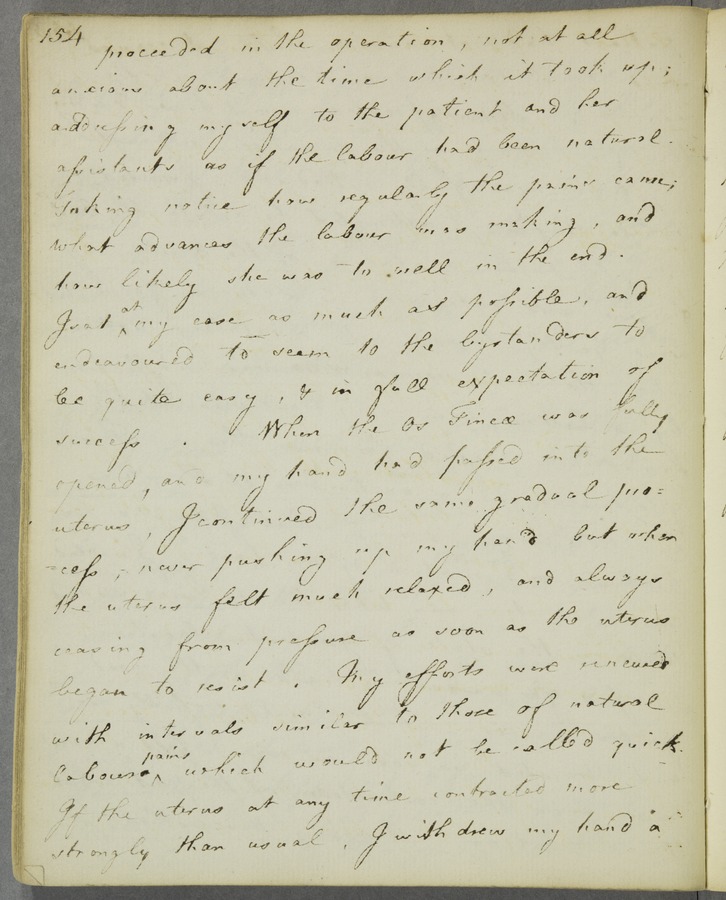 154
proceeded in the operation, not at all
anxious about the time which it took up;
addressing myself to the patient and her
assistants as if the labour had been natural.
Taking notice how regularly the pains came;
what advances the labour was making, and
how likely she was to well in the end.
I sat at my ease as much as possible, and
endeavoured to seem to the bystanders to
be quite easy, & in full expectation of
success. When the Os Tincæ was fully
opened, and my hand had passed into the
uterus, I continued the same gradual pro=
=cess; never pushing up my hand but when
the uterus felt much relaxed, and always
ceasing from pressure as soon as the uterus
began to resist. My efforts were renewed
with intervals similar to those of natural
labour pains which would not be called quick.
If the uterus at any time contracted more
strongly than usual, I withdrew my hand a